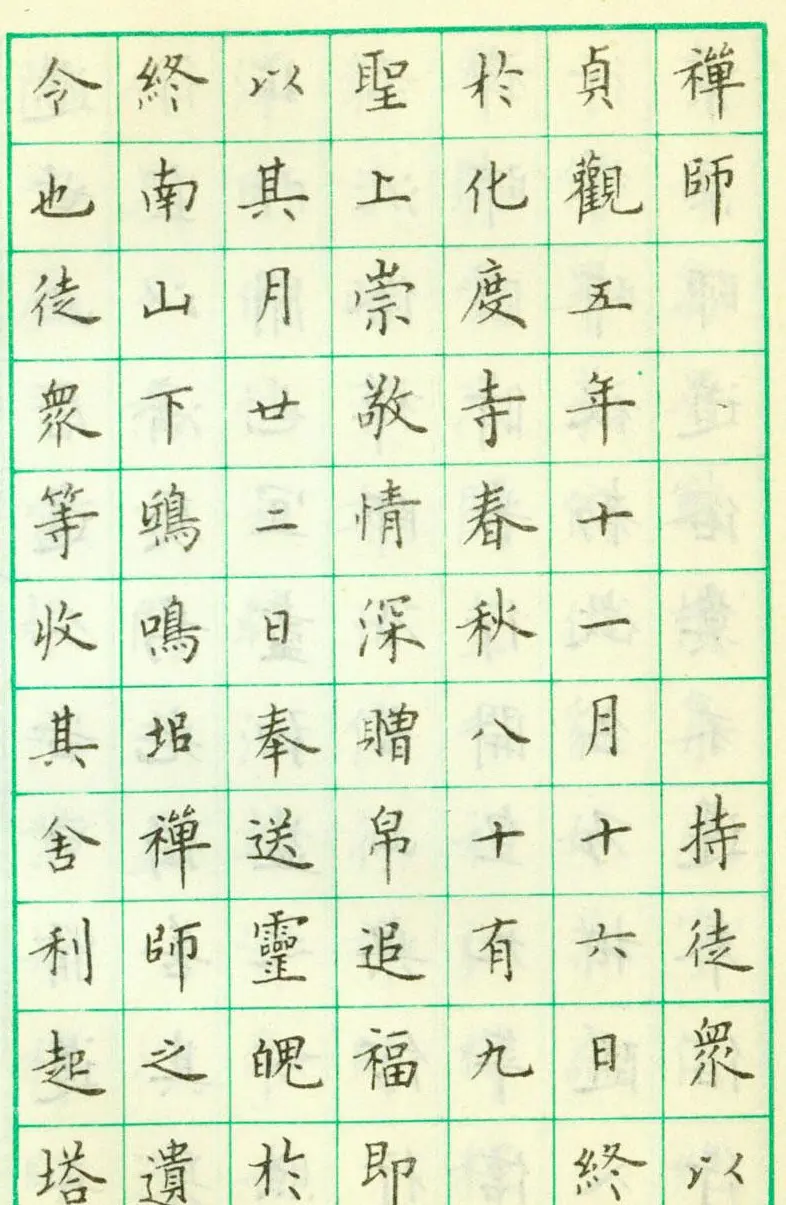 禪師持徒衆以
貞觀五年十一月十六日終
於化度寺春秋八十有九
聖上崇敬情深贈帛追福即
以其月廿二日奉送靈魄於
終南山下鴟鳴埳禪師之遺
令也徒衆等收其舍利起塔